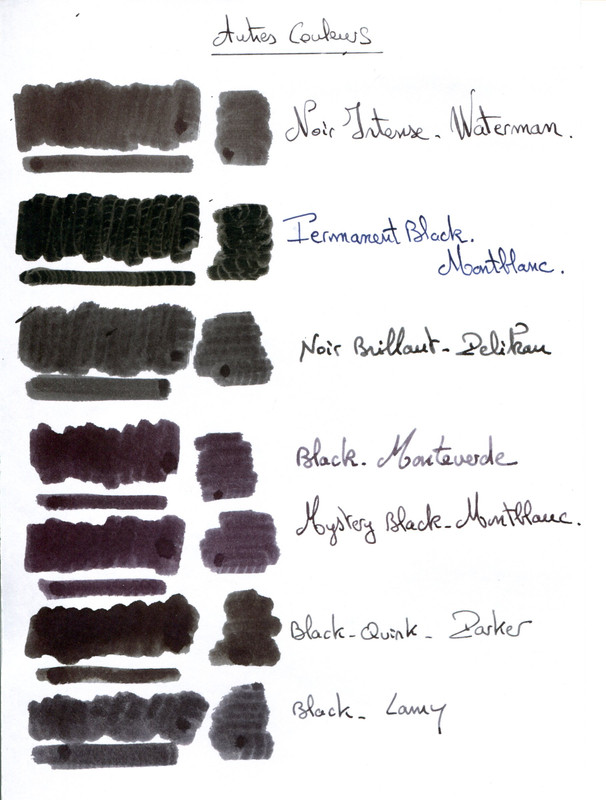 Autres Couleurs
Noir Intense - Waterman.
Permanent Black.
Montblanc.
Noir Brillant - Pelikan
Black - Monteverde
Mystery Black - Montblanc.
Black - Quink - Parker
Black - Lamy